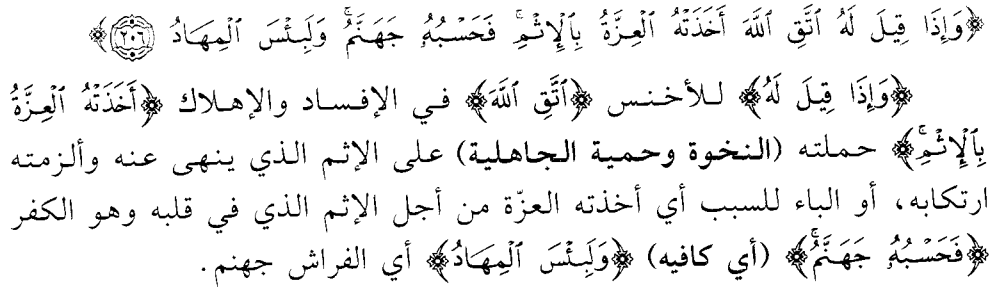 ﴿وَإِذَا قِيلَ لَهُ ٱتَّقِ ٱللَّهَ أَخَذَتْهُ ٱلْعِزَّةُ بِٱلْإِثْمِۚ فَحَسْبُهُۥ جَهَنَّمُۚ وَلَبِئْسَ ٱلْمِهَادُ ۝٢٠٦﴾
﴿وَإِذَا قِيلَ لَهُ﴾ للأخنس ﴿ٱتَّقِ ٱللَّهَ﴾ في الإفساد والإهلاك ﴿أَخَذَتْهُ ٱلْعِزَّةُ
بِٱلْإِثْمِۚ﴾ حملته (النخوة وحمية الجاهلية) على الإثم الذي ينهى عنه وألزمته
ارتكابه، أو الباء للسبب أي أخذته العزّة من أجل الإثم الذي في قلبه وهو الكفر
﴿فَحَسْبُهُۥ جَهَنَّمُۚ﴾ (أي كافيه) ﴿وَلَبِئْسَ ٱلْمِهَادُ﴾ أي الفراش جهنم.